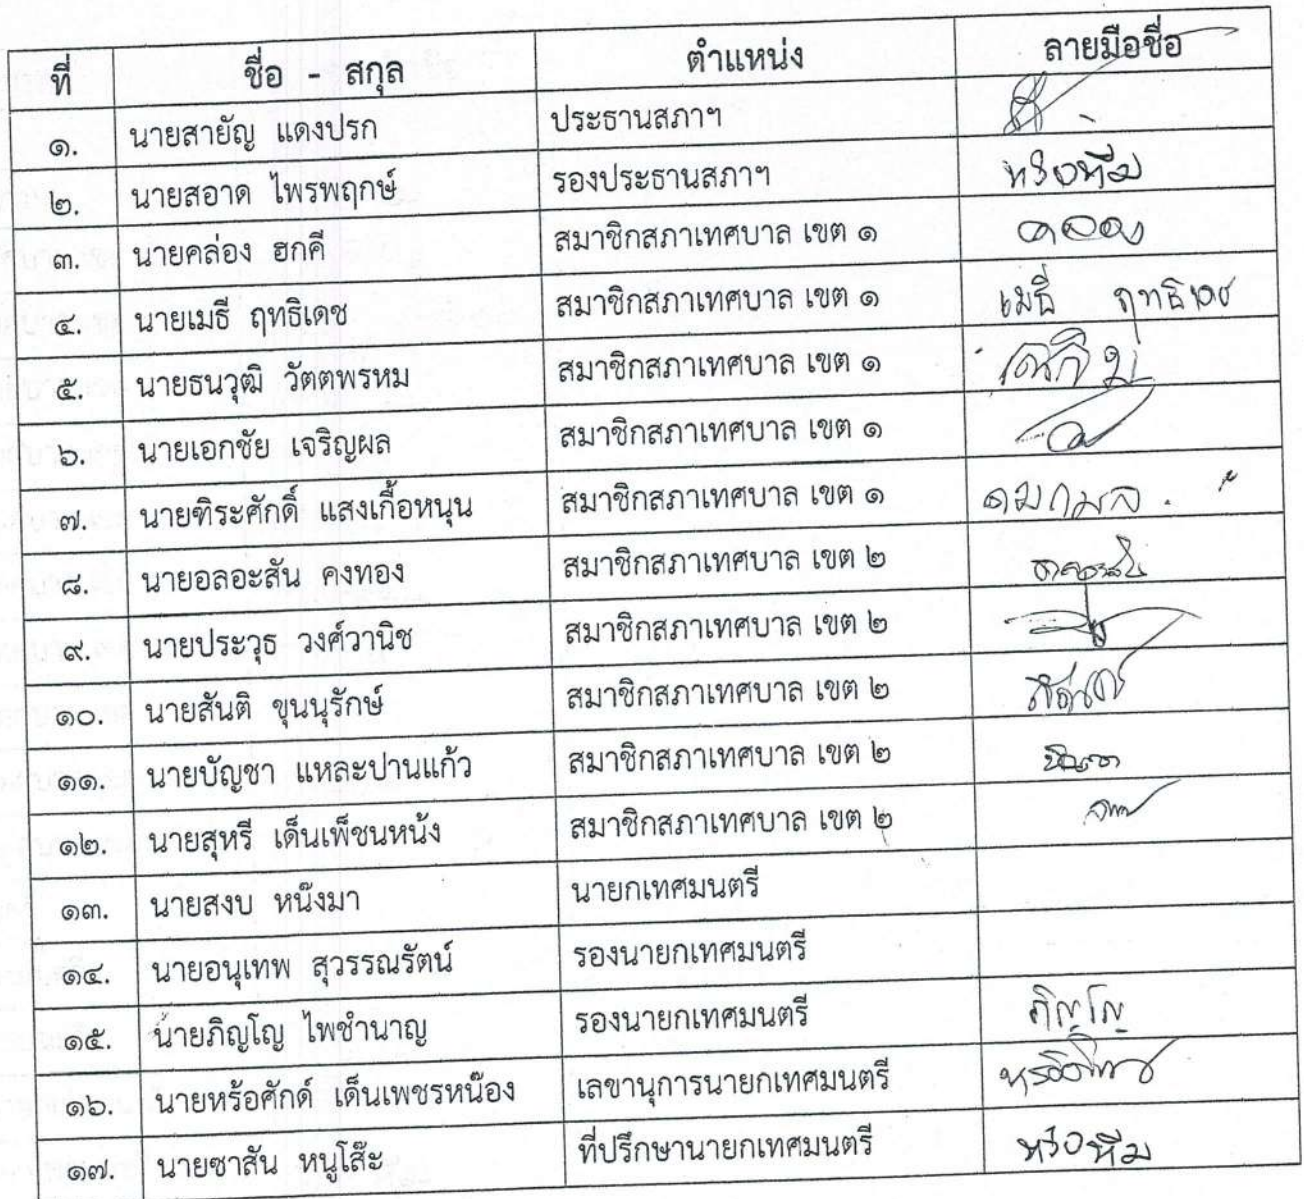 ที่ ชื่อ - สกุล ตำแหน่ง ลายมือชื่อ
๑. นายสายัญ แดงปรก ประธานสภาฯ
๒. นายสอาด ไพรพฤกษ์ รองประธานสภาฯ
๓. นายคล่อง ฮกคี สมาชิกสภาเทศบาล เขต ๑
๔. นายเมธี ฤทธิเดช สมาชิกสภาเทศบาล เขต ๑ เมธี ฤทธิเดช
๕. นายธนวุฒิ วัตตพรหม สมาชิกสภาเทศบาล เขต ๑
๖. นายเอกชัย เจริญผล สมาชิกสภาเทศบาล เขต ๑
๗. นายฑิระศักดิ์ แสงเกื้อหนุน สมาชิกสภาเทศบาล เขต ๑
๘. นายอลอะสัน คงทอง สมาชิกสภาเทศบาล เขต ๒
๙. นายประวุธ วงศ์วานิช สมาชิกสภาเทศบาล เขต ๒
๑๐. นายสันติ ขุนนุรักษ์ สมาชิกสภาเทศบาล เขต ๒
๑๑. นายบัญชา แหละปานแก้ว สมาชิกสภาเทศบาล เขต ๒
๑๒. นายสุหรี เด็นเพ็ชนหนัง สมาชิกสภาเทศบาล เขต ๒
๑๓. นายสงบ หนิ๊งมา นายกเทศมนตรี
๑๔. นายอนุเทพ สุวรรณรัตน์ รองนายกเทศมนตรี
๑๕. นายภิญโญ ไพชำนาญ รองนายกเทศมนตรี ภิญโญ
๑๖. นายหร้อศักด์ เด็นเพชรหน๊อง เลขานุการนายกเทศมนตรี
๑๗. นายซาสัน หนูโส๊ะ ที่ปรึกษานายกเทศมนตรี